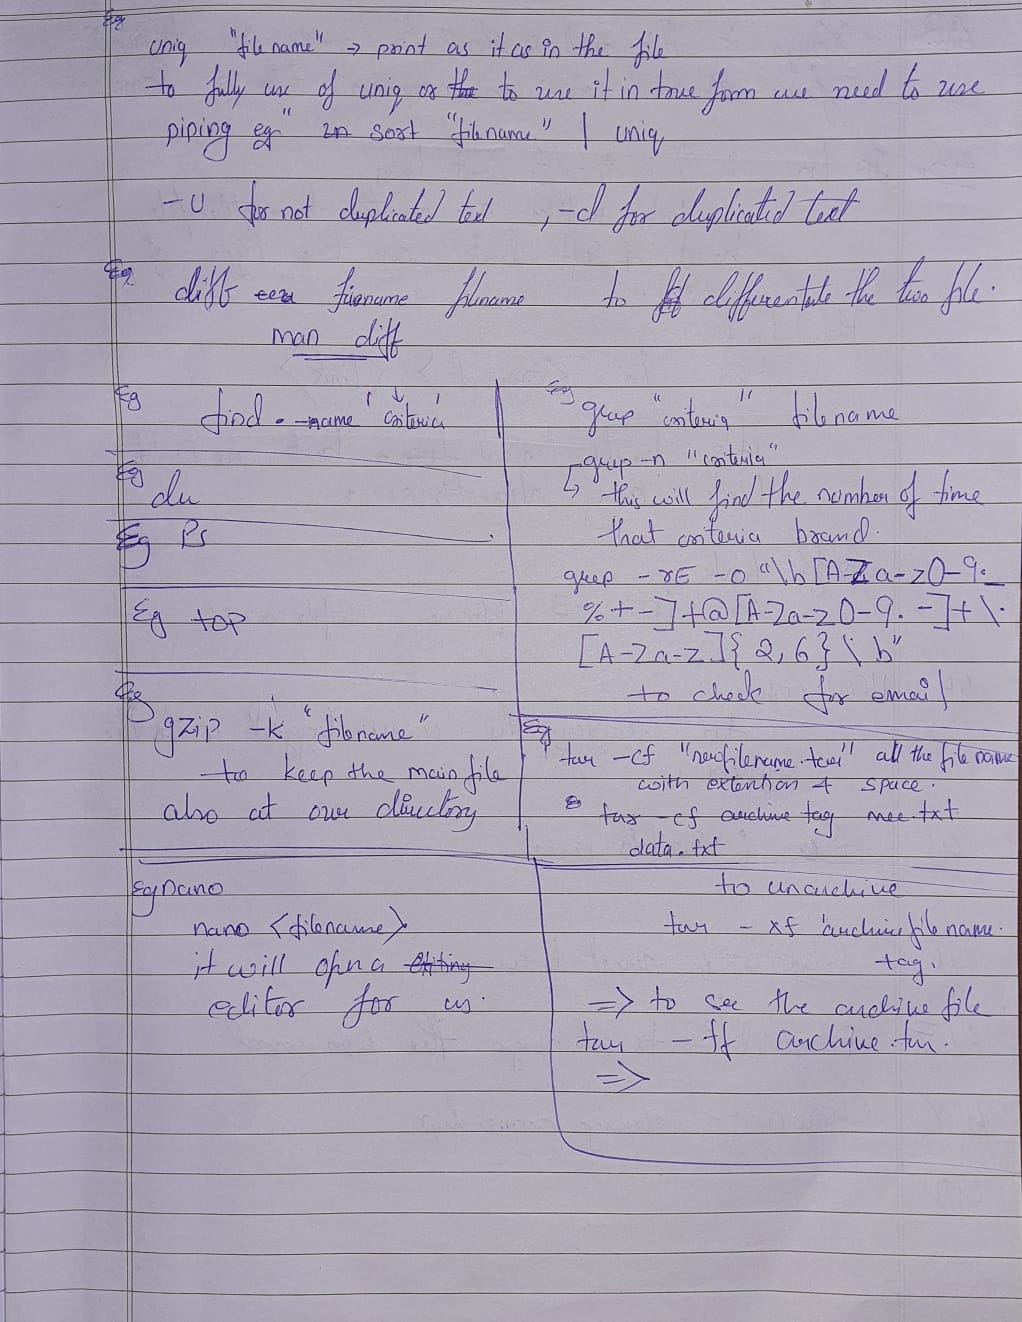 Eg
uniq "file name" → print as it as in the file
to fully use of uniq or to use it in true form we need to use
piping eg" sort "filename" | uniq
-U for not duplicated text , -d for duplicated text
Eg
diff filename filename to differentiate the two file.
man diff
Eg
find . -name 'criteria'
Eg
du
Eg Ps
Eg top
Eg
gzip -k "filename"
to keep the main file
also at our directory
Eg nano
nano <filename>
it will open a
editor for us.
Eg
grep "criteria" filename
grep -n "criteria"
↳ this will find the number of time
that criteria
grep -rE -o "\b[A-Za-z0-9._
%+-]+@[A-Za-z0-9.-]+\.
[A-Za-z]{2,6}\b"
to check for email
Eg
tar -cf "newfilename.tar" all the file name
with extention & space.
tar -cf archive tag mee.txt
data.txt
to unarchive
tar -xf 'archive file name.
tag.
=> to see the archive file
tar -tf archive.tar.
=>